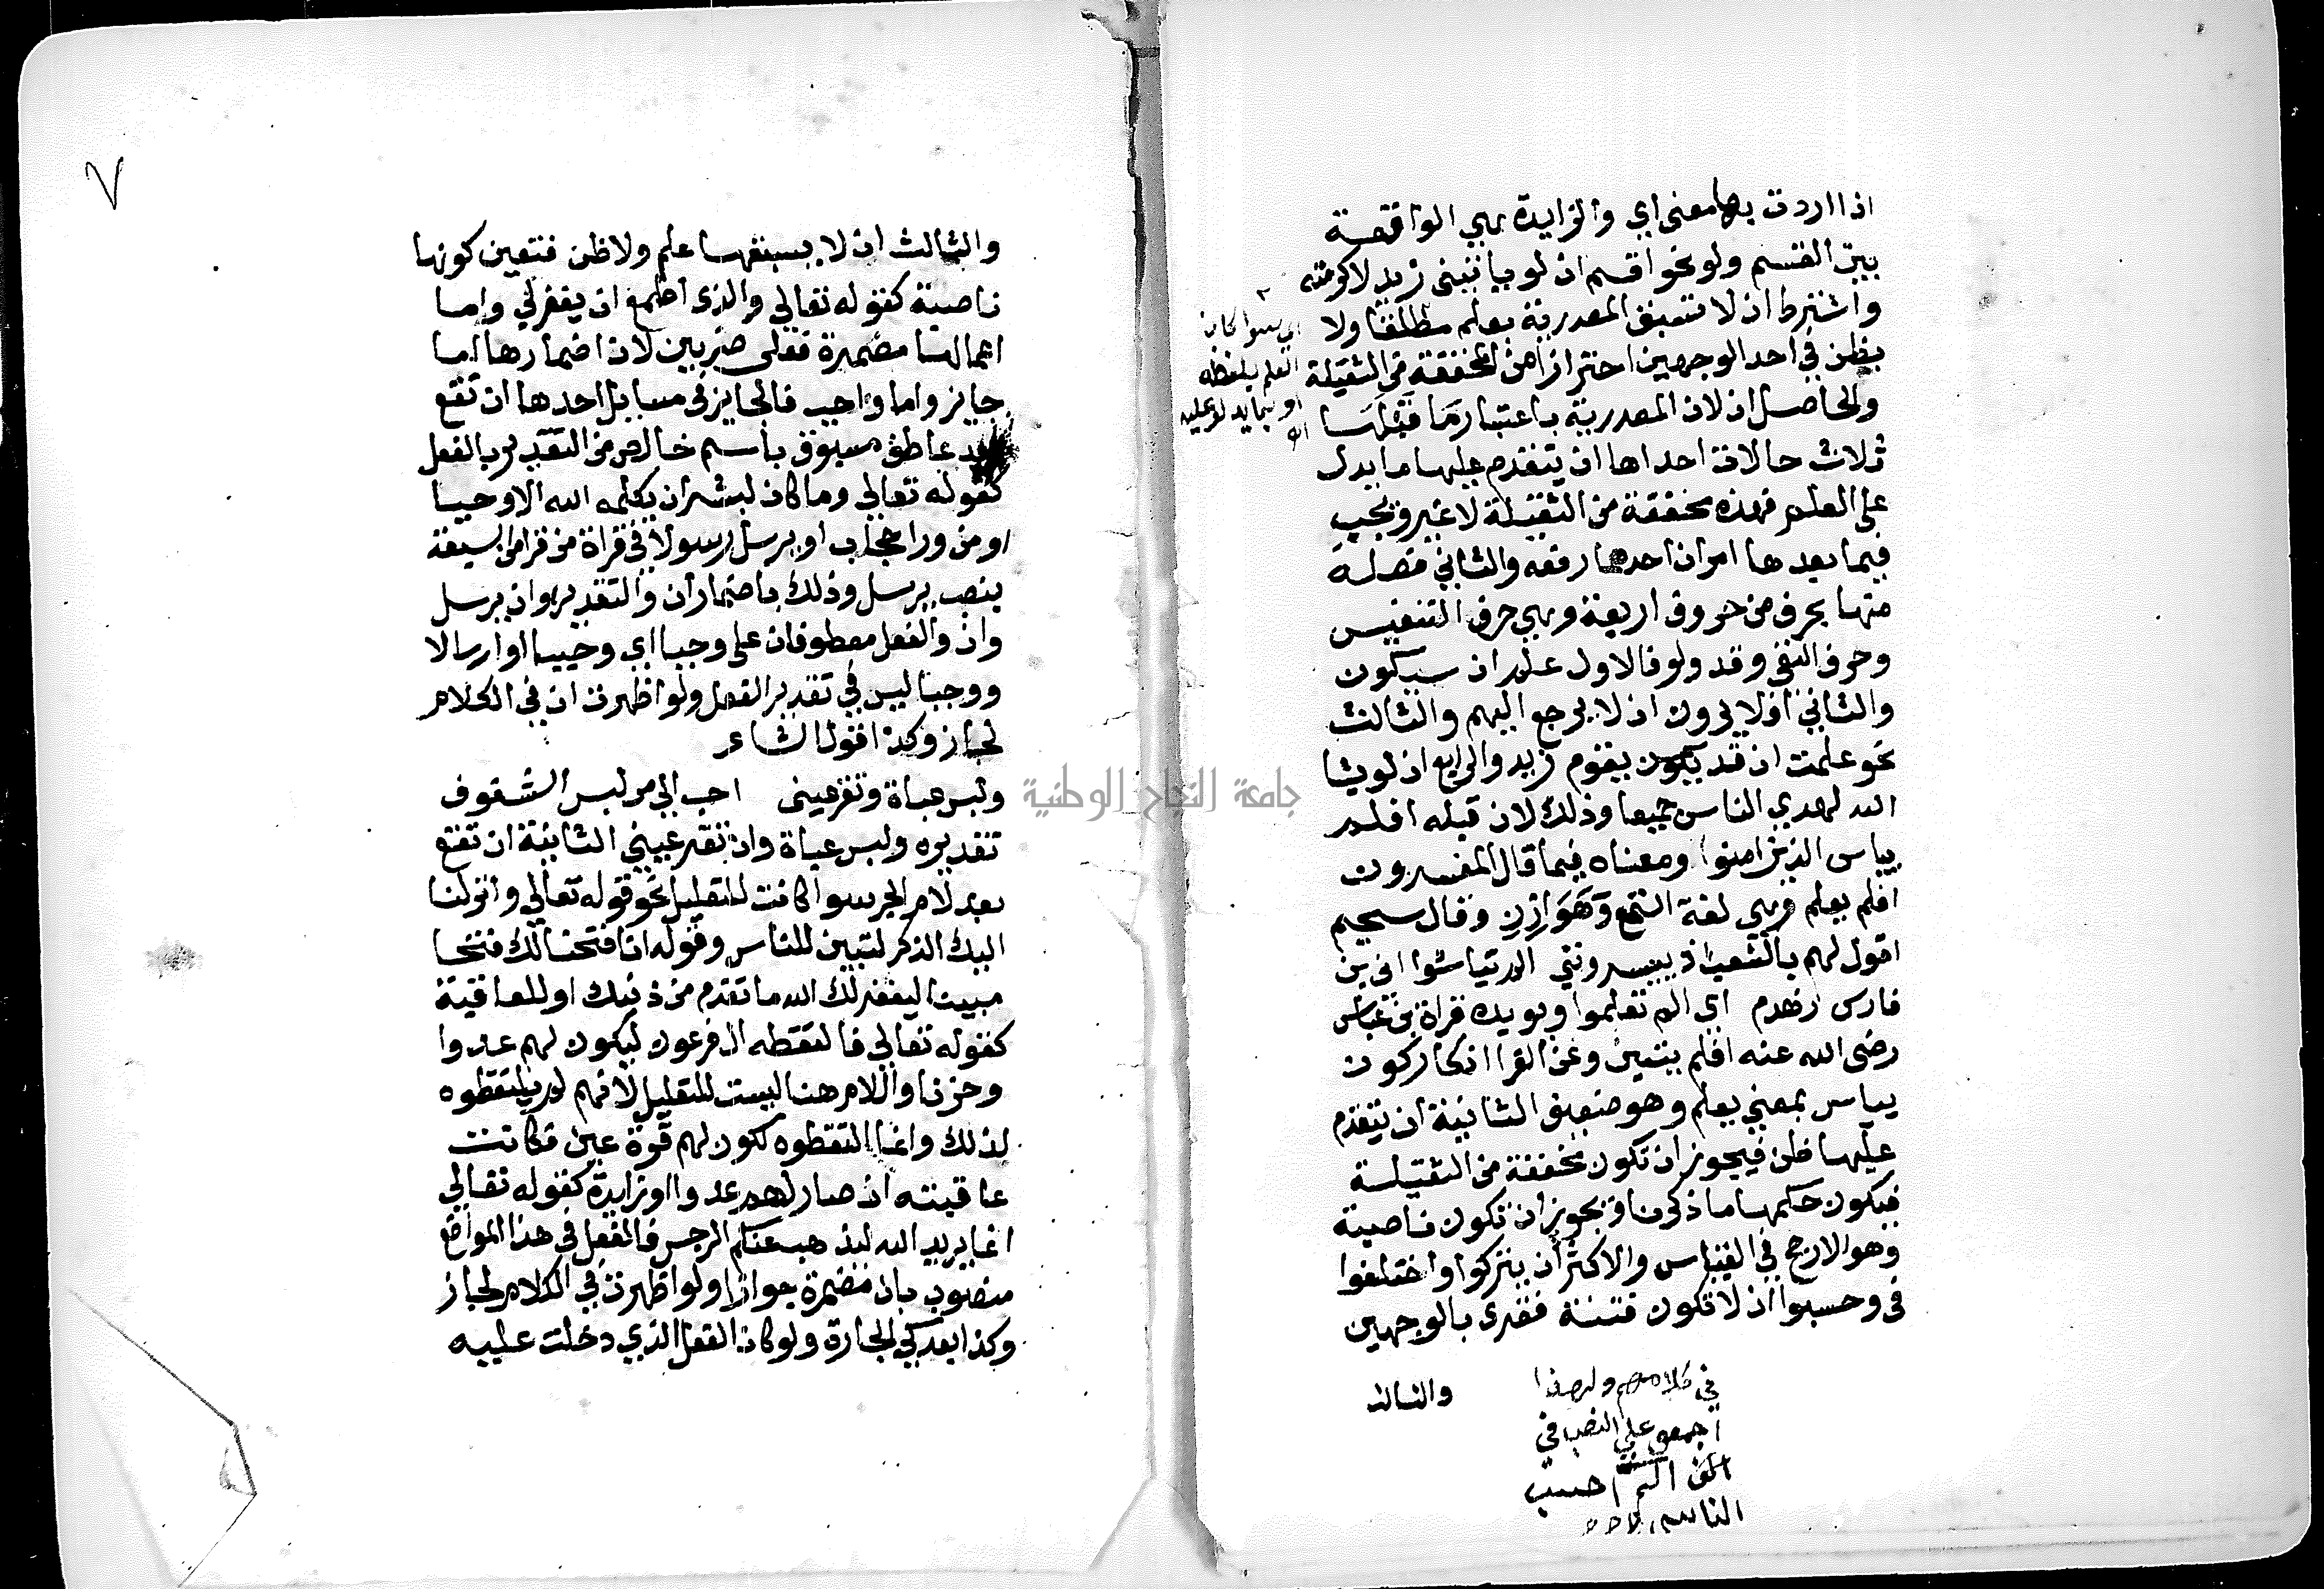 اذا اردت بها معنى اي والزايدة هي الواقعة
بين القسم ولو نحو اقسم ان لو ياتيني زيد لاكرمته
واشترط ان لا تسبق المصدرية بعلم مطلقا ولا
بظن في احد الوجهين احترازا عن المخففة من الثقيلة
والحاصل ان لان المصدرية باعتبار ما قبلها
ثلاث حالات احداها ان يتقدم عليها ما يدل
على العلم فهذه مخففة من الثقيلة لا غير ويجب
فيما بعدها امران احدهما رفعه والثاني فصله
منها بحرف من حروف اربعة وهي حرف التنفيس
وحرف النفي وقد ولو فالاول علم ان سيكون
والثاني افلا يرون ان لا يرجع اليهم والثالث
نحو علمت ان قد يقوم زيد والرابع ان لو يشا
الله لهدي الناس جميعا وذلك لان قبله افلم
يياس الذين امنوا ومعناه فيما قال المفسرون
افلم يعلم وهي لغة النخع وهوازن وقال سحيم
اقول لهم بالشعب اذ ييسرونني الم تياسوا اني بن
فارس زهدم اي الم تعلموا ويويده قراة بن عباس
رضى الله عنه افلم يتبين وعن الفرا انكار كون
يياس بمعني يعلم وهو ضعيف الثانية ان يتقدم
عليها ظن فيجوز ان تكون مخففة من الثقيلة
فيكون حكمها ما ذكرنا ويجوز ان تكون ناصبة
وهو الارجح في القياس والاكثر ان يتركوا واختلفوا
في وحسبوا ان لا تكون فتنة فقرى بالوجهين
والثالث
اي سوا كان
العلم بلفظه
او بما يدل عليه
في كلامهم ولهذا
اجمعو على النصب في
الم احسب
الناس
٧
والثالث ان لا يسبقها علم ولا ظن فتعين كونها
ناصبة كقوله تعالي والذى اطمع ان يغفر لي واما
اعمالها مضمرة فعلى ضربين لان اضمارها اما
جايز واما واجب فالجايز في مسايل احدها ان تقع
بعد عاطف مسبوق باسم خالص من التقدير بالفعل
كقوله تعالي وما كان لبشر ان يكلمه الله الا وحيا
او من ورا حجاب او يرسل رسولا في قراة من قرا من السبعة
بنصب يرسل وذلك باضمار ان والتقدير او ان يرسل
وان والفعل معطوفان على وحيا اي وحيا او ارسالا
ووحيا ليس في تقدير الفعل ولو اظهرت ان في الكلام
لجاز وكذا قول الشاعر
ولبس عباة وتقر عيني احب الي من لبس الشفوف
تقديره ولبس عباة وان تقر عيني الثانية ان تقع
بعد لام الجر سوا كانت للتعليل نحو قوله تعالي وانزلنا
اليك الذكر لتبين للناس وقوله انا فتحنا لك فتحا
مبينا ليغفر لك الله ما تقدم من ذنبك او للعاقبة
كقوله تعالي فالتقطه ال فرعون ليكون لهم عدوا
وحزنا واللام هنا ليست للتعليل لانهم لم يلتقطوه
لذلك وانما التقطوه لكون لهم قرة عين فكانت
عاقبته ان صار لهم عدوا او زايدة كقوله تعالي
انما يريد الله ليذهب عنكم الرجس فالفعل في هذا المواضع
منصوب بان مضمرة جوازا ولو اظهرت في الكلام لجاز
وكذا بعد كي الجارة ولو كان الفعل الذي دخلت عليه
جامعة النجاح الوطنية